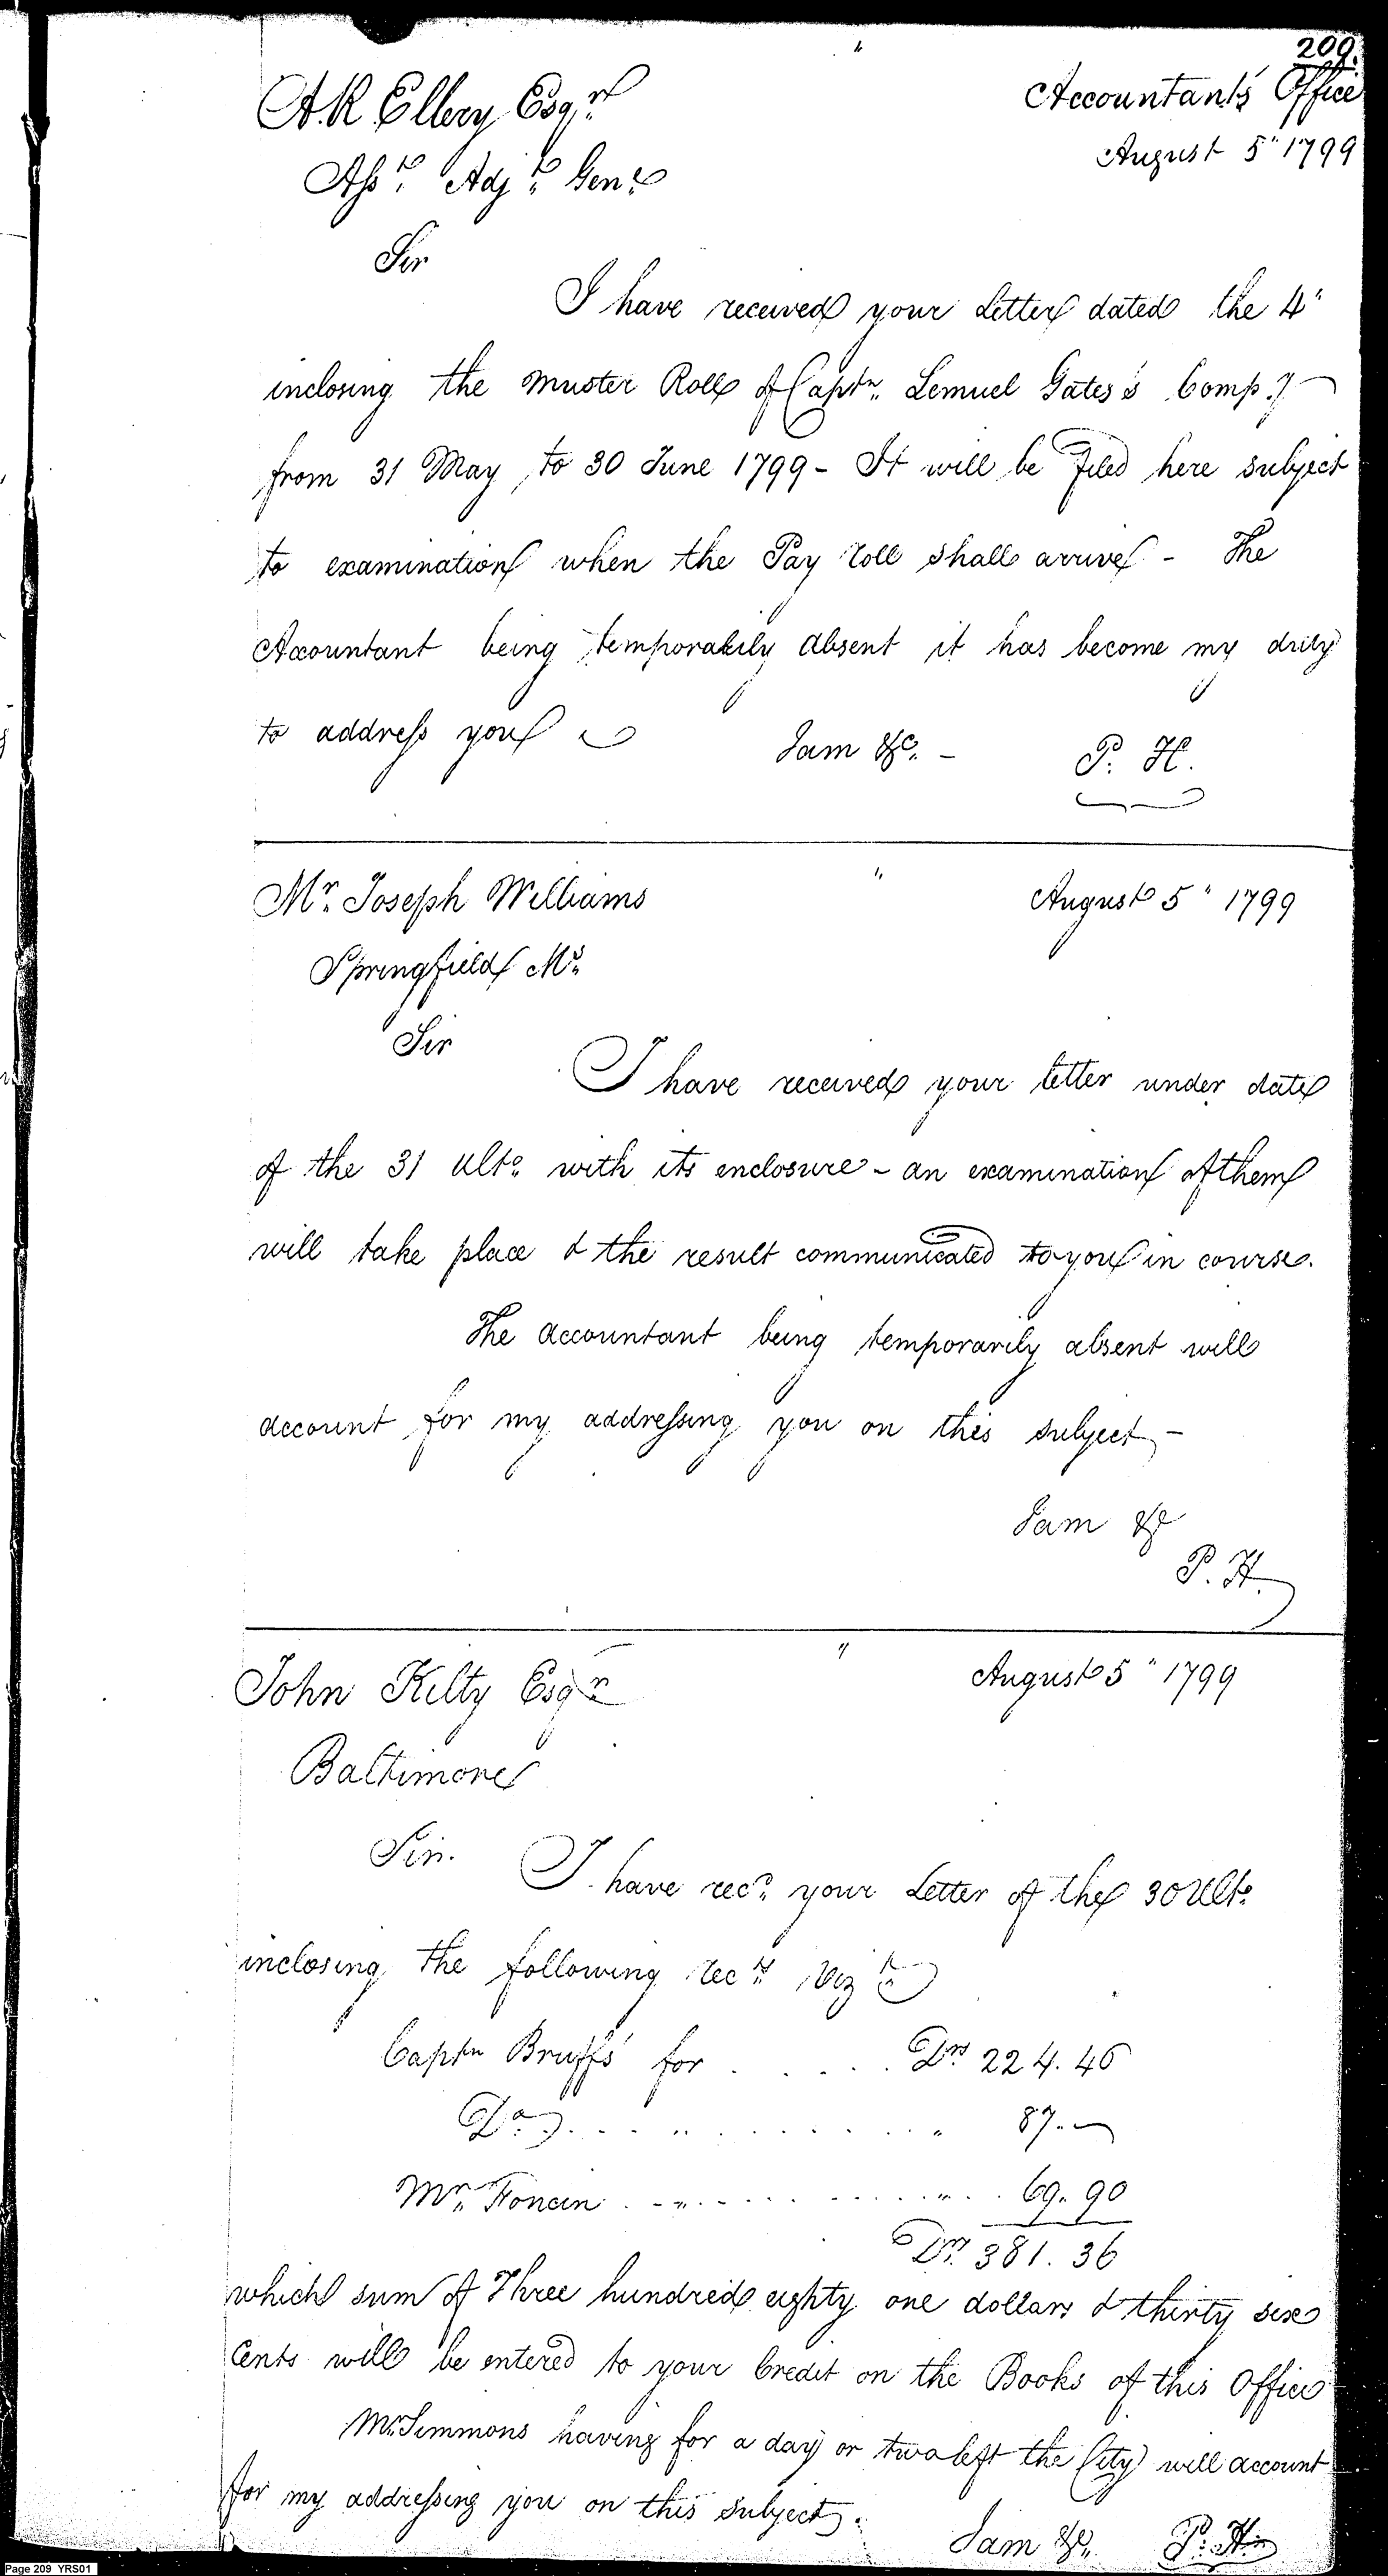 209.
A.R. Ellery Esqr.
Accountants Office
August 5" 1799
Asst. Adjt. Genl.
Sir
I have received your Letter dated the 4"
inclosing the Muster Roll of Captn. Lemuel Gates's Compy
from 31 May to 30 June 1799 - It will be filed here subject
to examination when the Pay roll shall arrive - The
Accountant being temporarily absent it has become my duty
to address you
I am &c. - P. H.
Mr. Joseph Williams
August 5" 1799
Springfield Ms.
Sir
I have received your letter under date
of the 31 Ulto. with its enclosure - an examination of them
will take place & the result communicated to you in course.
The accountant being temporarily absent will
account for my addressing you on this subject -
I am &c
P. H.
John Kilty Esqr.
August 5" 1799
Baltimore
Sir. I have recd. your Letter of the 30 Ulto.
inclosing the following recs. Vizt.
Captn Bruffs for . . . . . Drs 224.46
Do. . . . . . . . . . . 87.-
Mr. Foncin . . . . . . . . . . 69.90
Drs. 381.36
which sum of Three hundred eighty one dollars & thirty six
Cents will be entered to your Credit on the Books of this Office
Mr. Simmons having for a day or two left the City will account
for my addressing you on this subject.
I am &c. P. H.
Page 209 YRS01